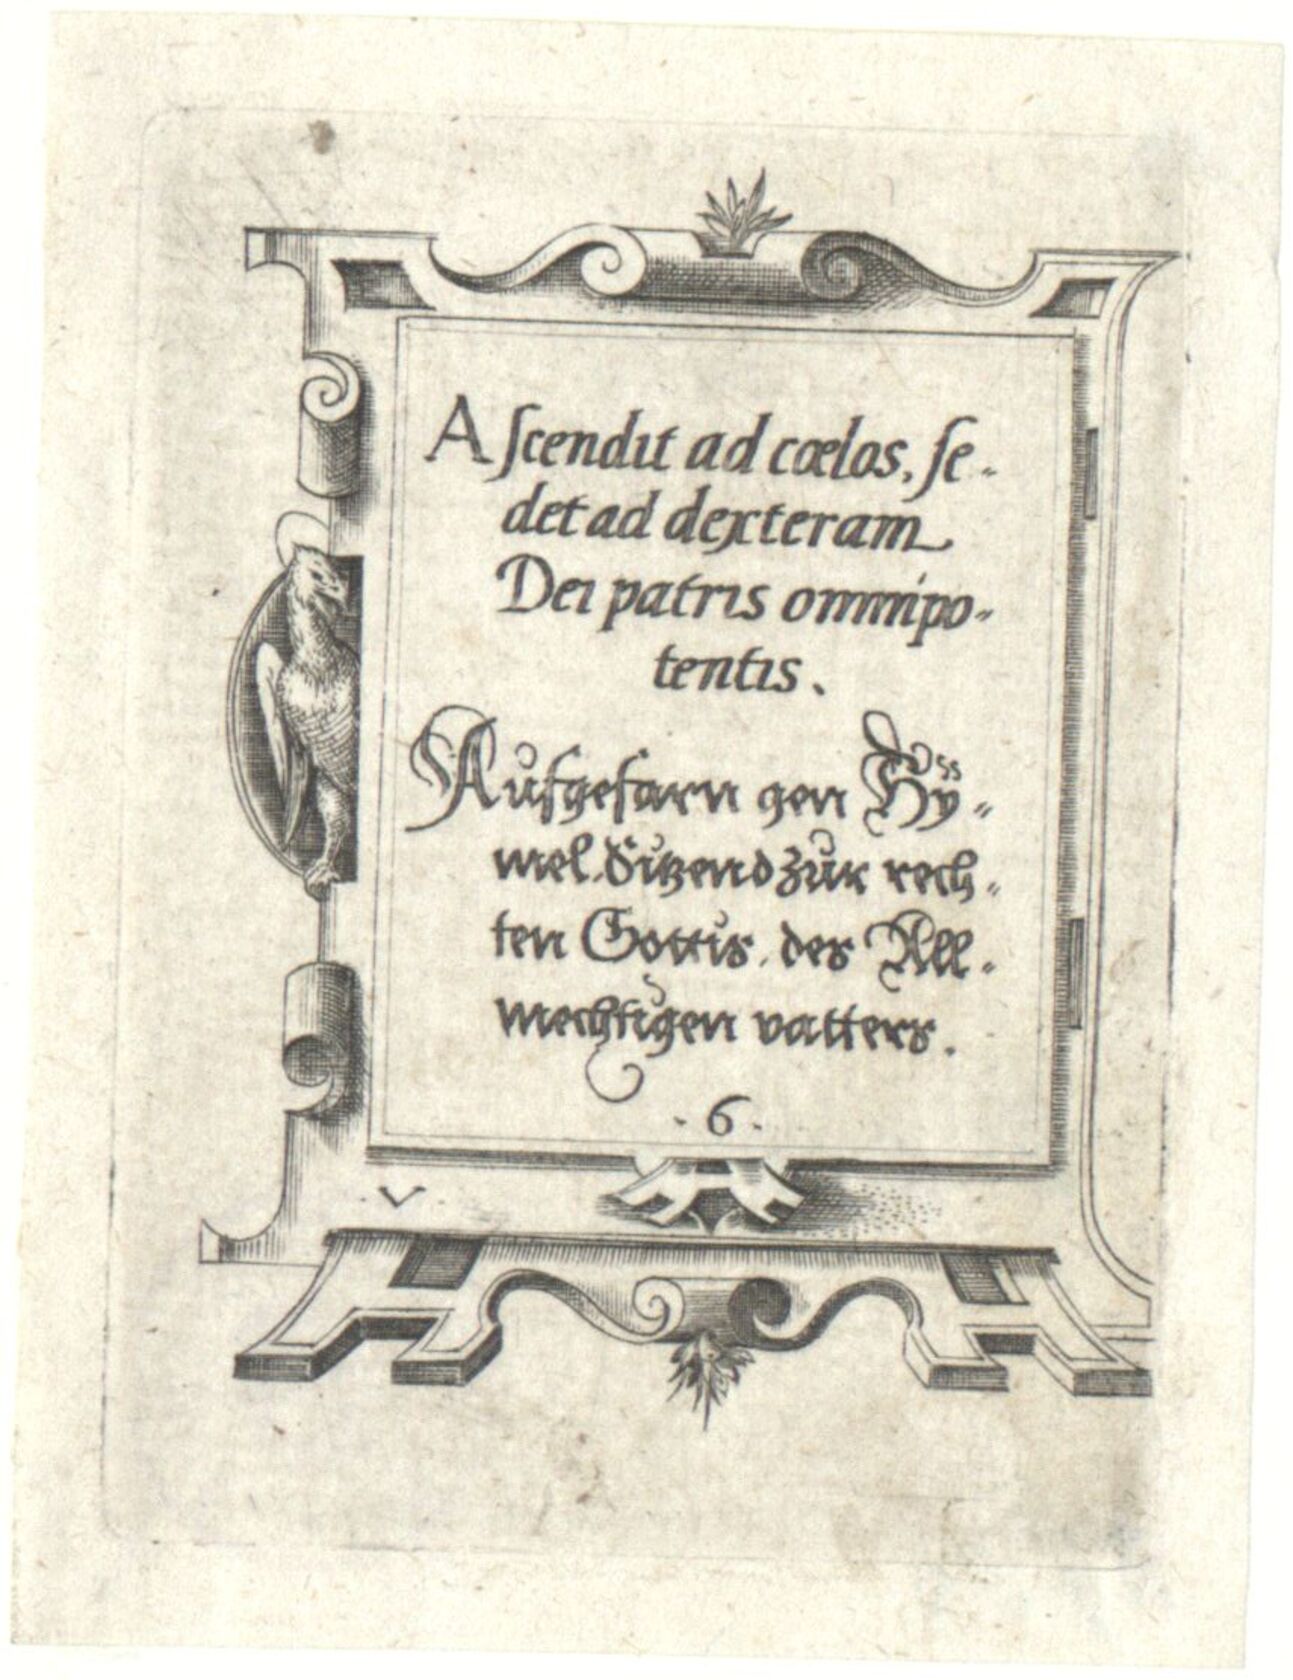 Aſcendit ad cœlos, ſe-
det ad dexteram
Dei patris omnipo-
tentis.
Aufgefarn gen Hÿ-
mel. Sitzend zur rech-
ten Gottis. des All-
mechtigen vatters.
·6·
V